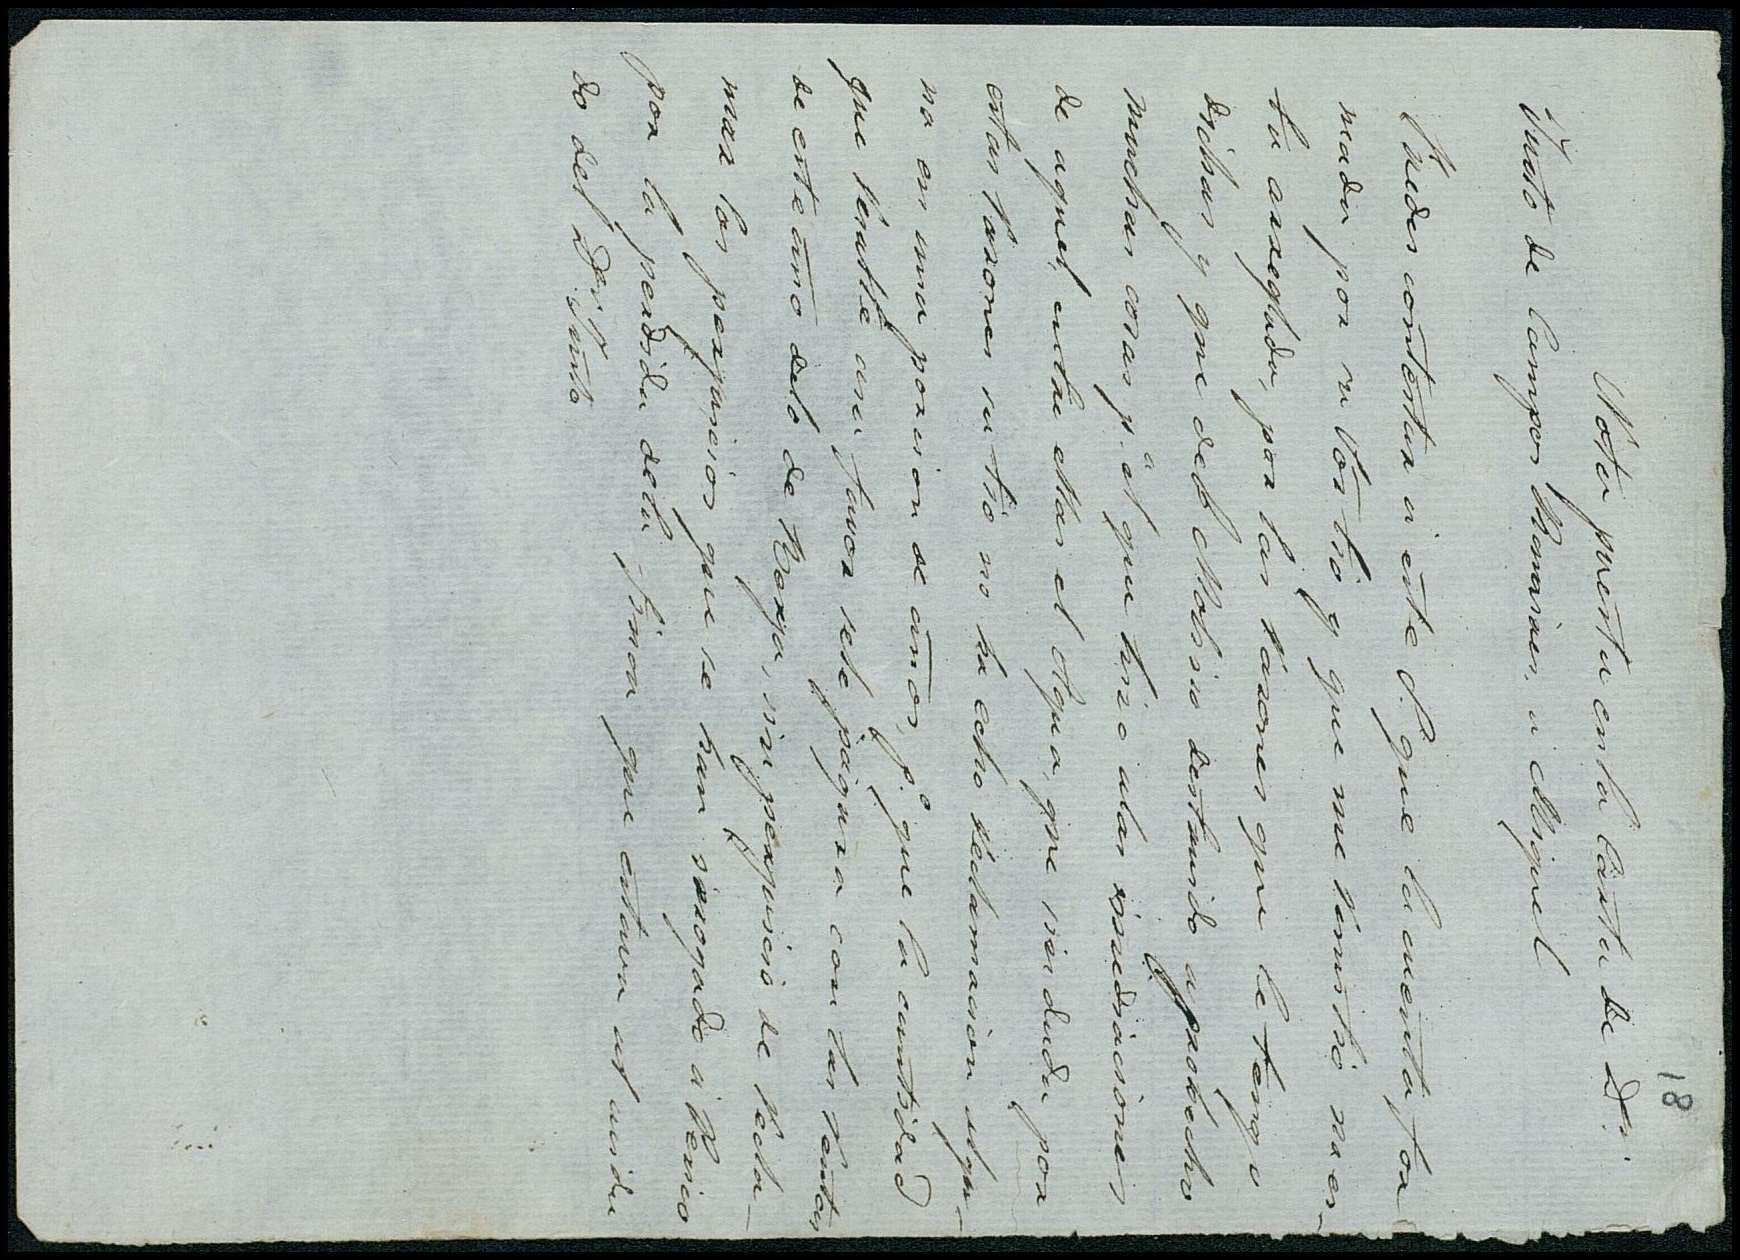 18
Nota puesta en la Carta de D.n
Justo de Campos Ramires, a Miguel
Puedes contestar a este S. que la cuenta for-
mada por su Cor tio y que me remitio no es-
ta arreglada, por las rasones que le tengo
dichas y que del Molino destruido aprobecho
muchas cosas p.a el que hiso alas inmediaciones
de aquel, entre ellas el Agua, que sin duda por
estas rasones su tio no ha echo reclamacion algu-
na en una porcion de años, p.o que la cantidad
que resulte asu favor sele pagara con las rentas
de este año delo de Borja, sin perjuicio de recla-
mar los perjuicios que se han irrogado a Renio
por la perdida dela finca que estava al cuida
do del D.n Justo